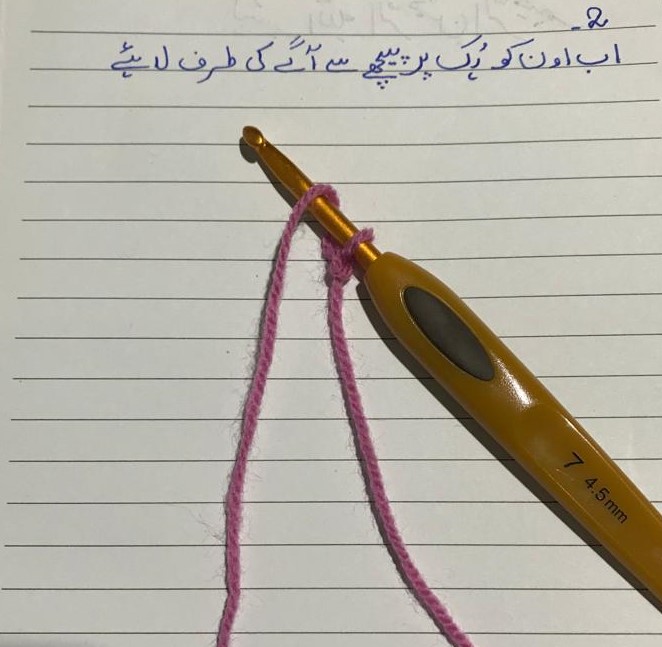 2-
اب اون کو ہُک پر پیچھے سے آگے کی طرف لائیے
7 4.5mm